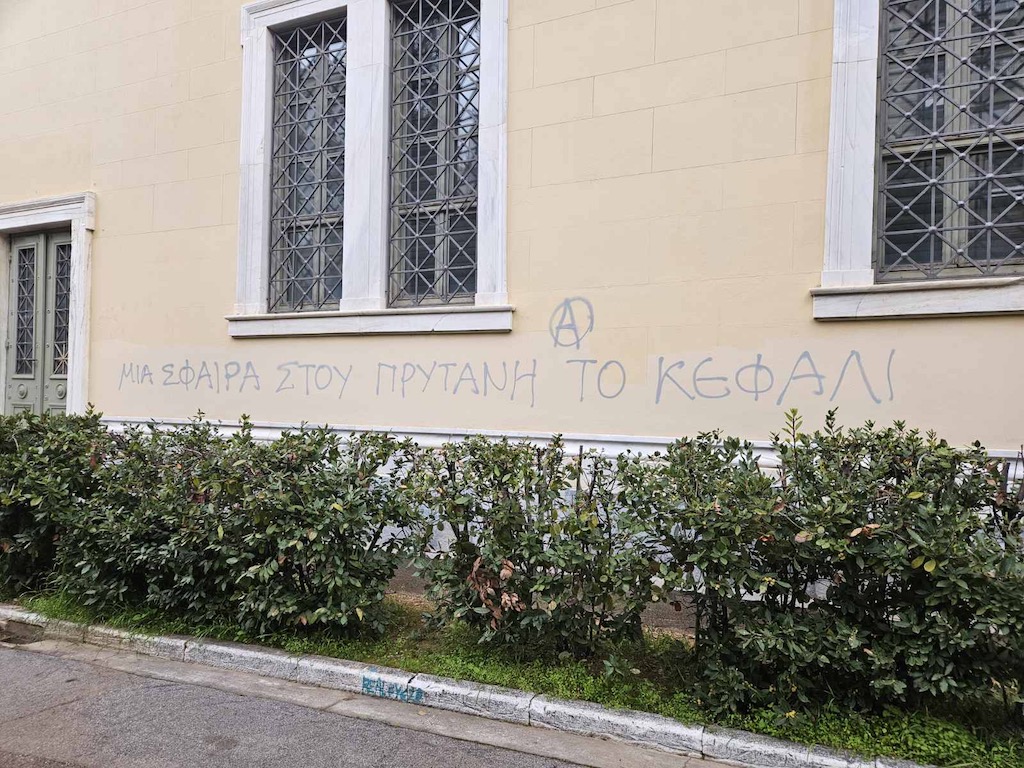 Ⓐ
ΜΙΑ ΣΦΑΙΡΑ ΣΤΟΥ ΠΡΥΤΑΝΗ ΤΟ ΚΕΦΑΛΙ